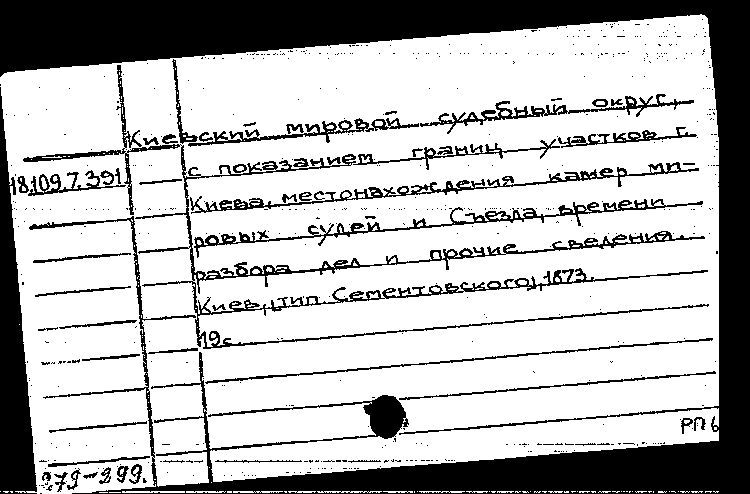 Киевский мировой судебный округ,
18.109.7.391.
с показанием границ участков г.
Киева, местонахождения камер ми-
ровых судей и Съезда, времени
разбора дел и прочие сведения.
Киев, [тип. Сементовского], 1873.
19с.
РП 6
279-299.